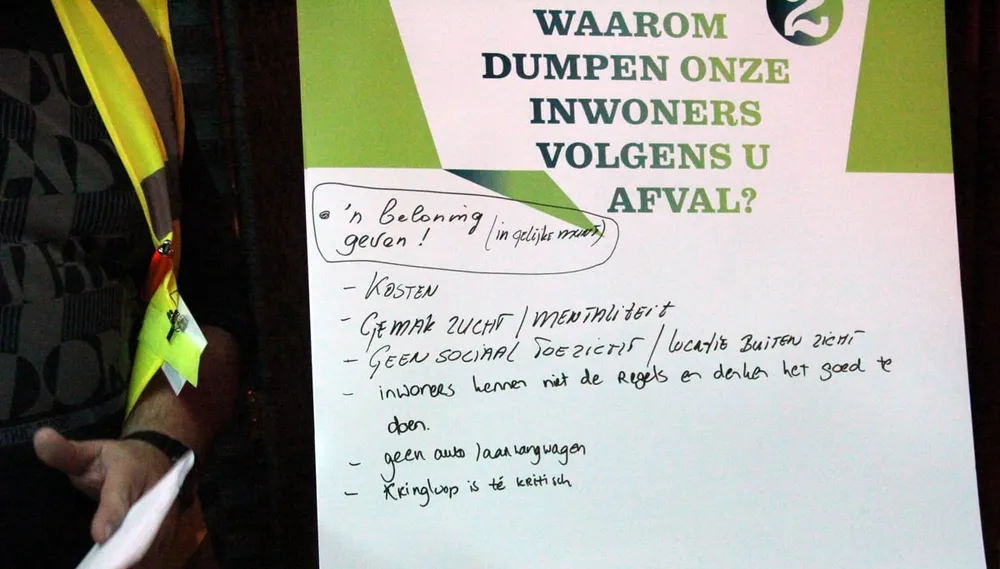 2
WAAROM
DUMPEN ONZE
INWONERS
VOLGENS U
AFVAL?
• 'n beloning
geven! (in gelijke munt)
- KOSTEN
- GEMAK ZUCHT / MENTALITEIT
- GEEN SOCIAAL TOEZICHT / LOCATIE BUITEN ZICHT
- inwoners kennen niet de Regels en denken het goed te
doen.
- geen auto / aanhangwagen
- Kringloop is té kritisch